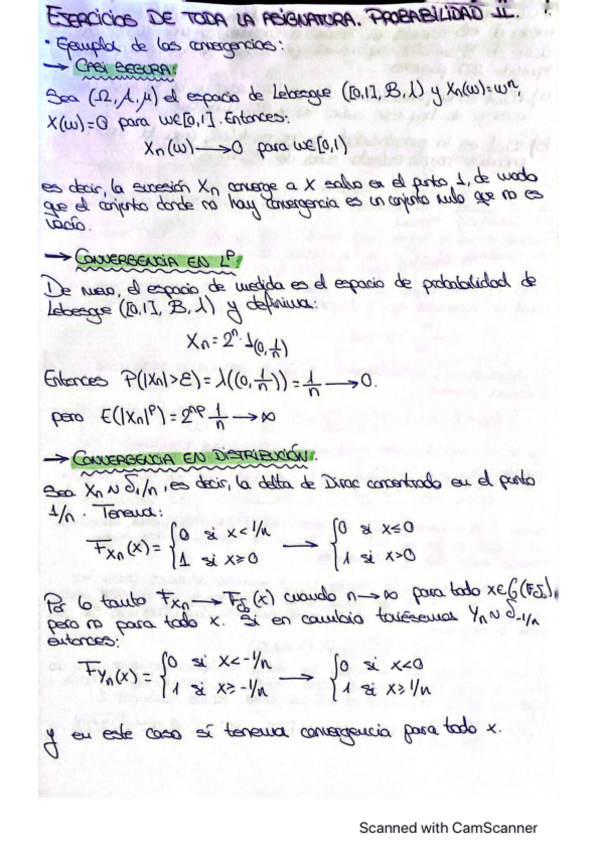 EJERCICIOS DE TODA LA ASIGNATURA. PROBABILIDAD II.
• Ejemplos de las convergencias:
→ CASI SEGURA:
Sea (Ω, A, μ) el espacio de Lebesgue ([0,1], B, λ) y Xn(ω)=ωⁿ,
X(ω)=0 para ω∈[0,1]. Entonces:
Xn(ω) → 0 para ω∈[0,1)
es decir, la sucesión Xn converge a X salvo en el punto 1, de modo
que el conjunto donde no hay convergencia es un conjunto nulo que no es
vacío.
→ CONVERGENCIA EN LP:
De nuevo, el espacio de medida es el espacio de probabilidad de
Lebesgue ([0,1], B, λ) y definimos:
Xn = 2ⁿ · 1(0, 1/n)
Entonces P(|Xn|>ε) = λ((0, 1/n)) = 1/n → 0.
pero E(|Xn|ᵖ) = 2ⁿᵖ · 1/n → ∞
→ CONVERGENCIA EN DISTRIBUCIÓN:
Sea Xn ~ δ1/n, es decir, la delta de Dirac concentrada en el punto
1/n. Tenemos:
FXn(x) = {0 si x<1/n → {0 si x≤0
1 si x≥0 1 si x>0
Por lo tanto FXn → Fδ0(x) cuando n→∞ para todo x∈C(FX),
pero no para todo x. Si en cambio tuviésemos Yn ~ δ-1/n
entonces:
FYn(x) = {0 si x<-1/n → {0 si x<0
1 si x≥-1/n 1 si x≥1/n
y en este caso sí tenemos convergencia para todo x.
Scanned with CamScanner